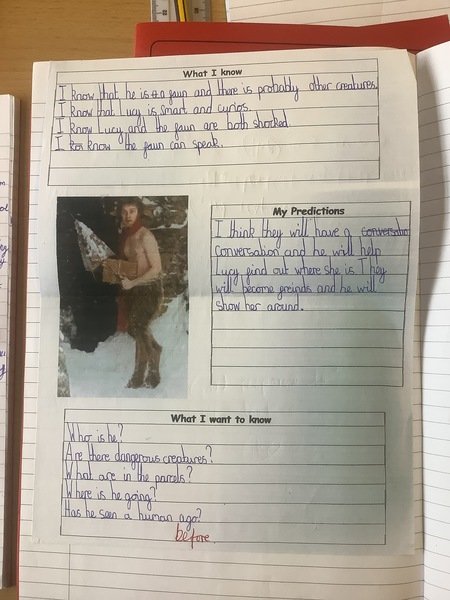 What I know
I know that he is a faun and there is probably other creatures.
I know that Lucy is smart and curios.
I know Lucy and the faun are both shocked.
I know the faun can speak.
My Predictions
I think they will have a conversation
conversation and he will help
Lucy find out where she is. They
will become freinds and he will
show her around.
What I want to know
Who is he?
Are there dangerous creatures?
What are in the parcels?
Where is he going?
Has he seen a human ago?
before